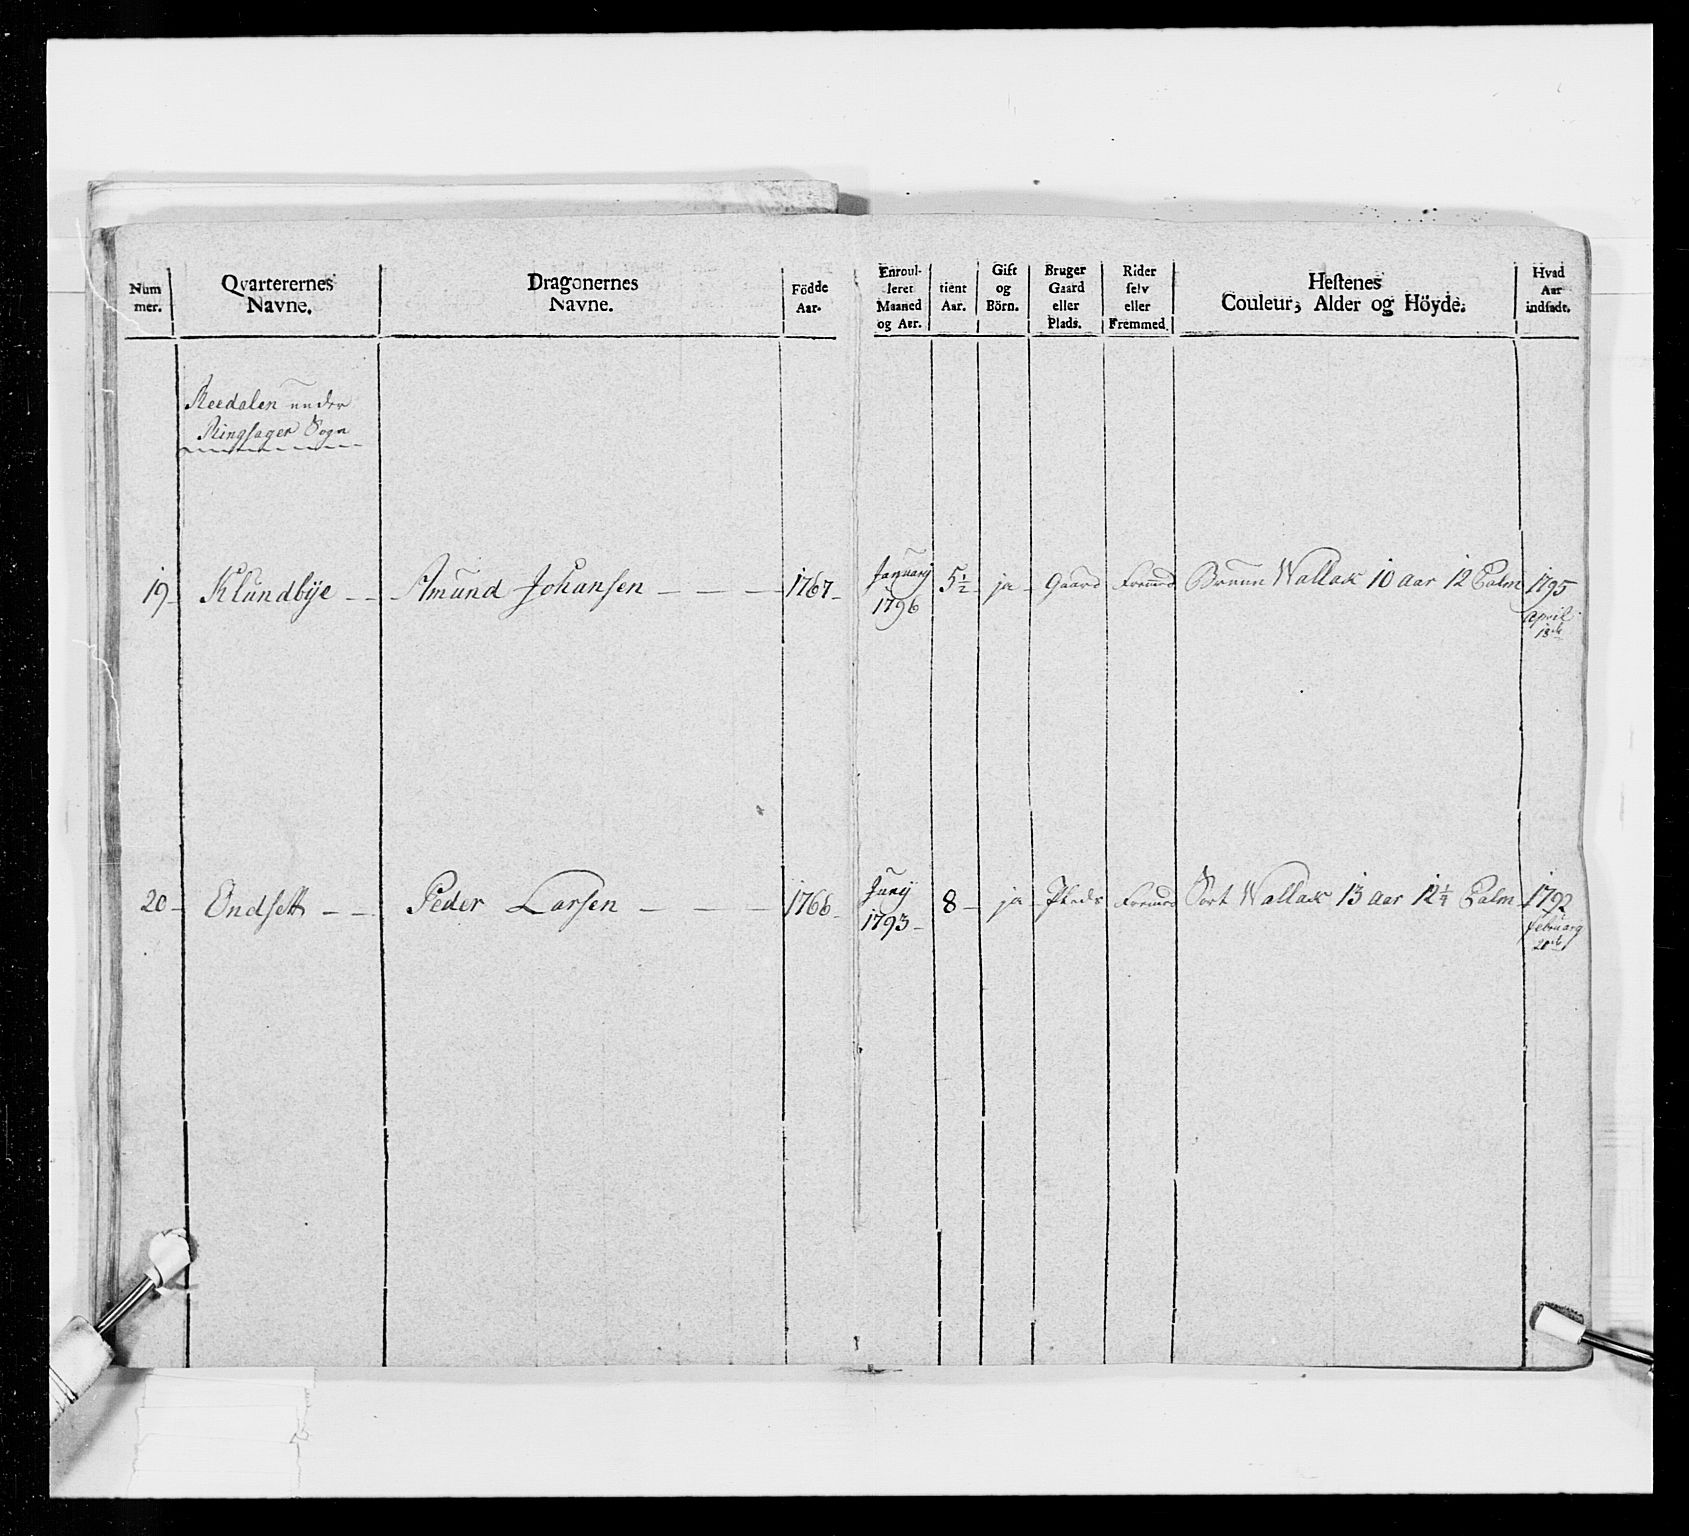 Num
mer.
Qvarterernes
Navne.
Dragonernes
Navne.
Födde
Aar.
Enroul-
leret
Maaned
og Aar.
tient
Aar.
Gift
og
Börn.
Bruger
Gaard
eller
Plads.
Rider
selv
eller
Fremmed.
Hestenes
Couleur, Alder og Höyde.
Hvad
Aar
indsadt.
Reedalen under
Ringsager Sogn
19 Klundbÿe Amund Johansen 1767 January 1796 5½ ja Gaard Fremmed Bruun Wallak 10 Aar 12 Palm 1795
April
13de
20 Endsett Peder Larsen 1766 Junij 1793 8 ja Plads Fremmed Sort Wallak 13 Aar 12¼ Palm 1792
February
20de